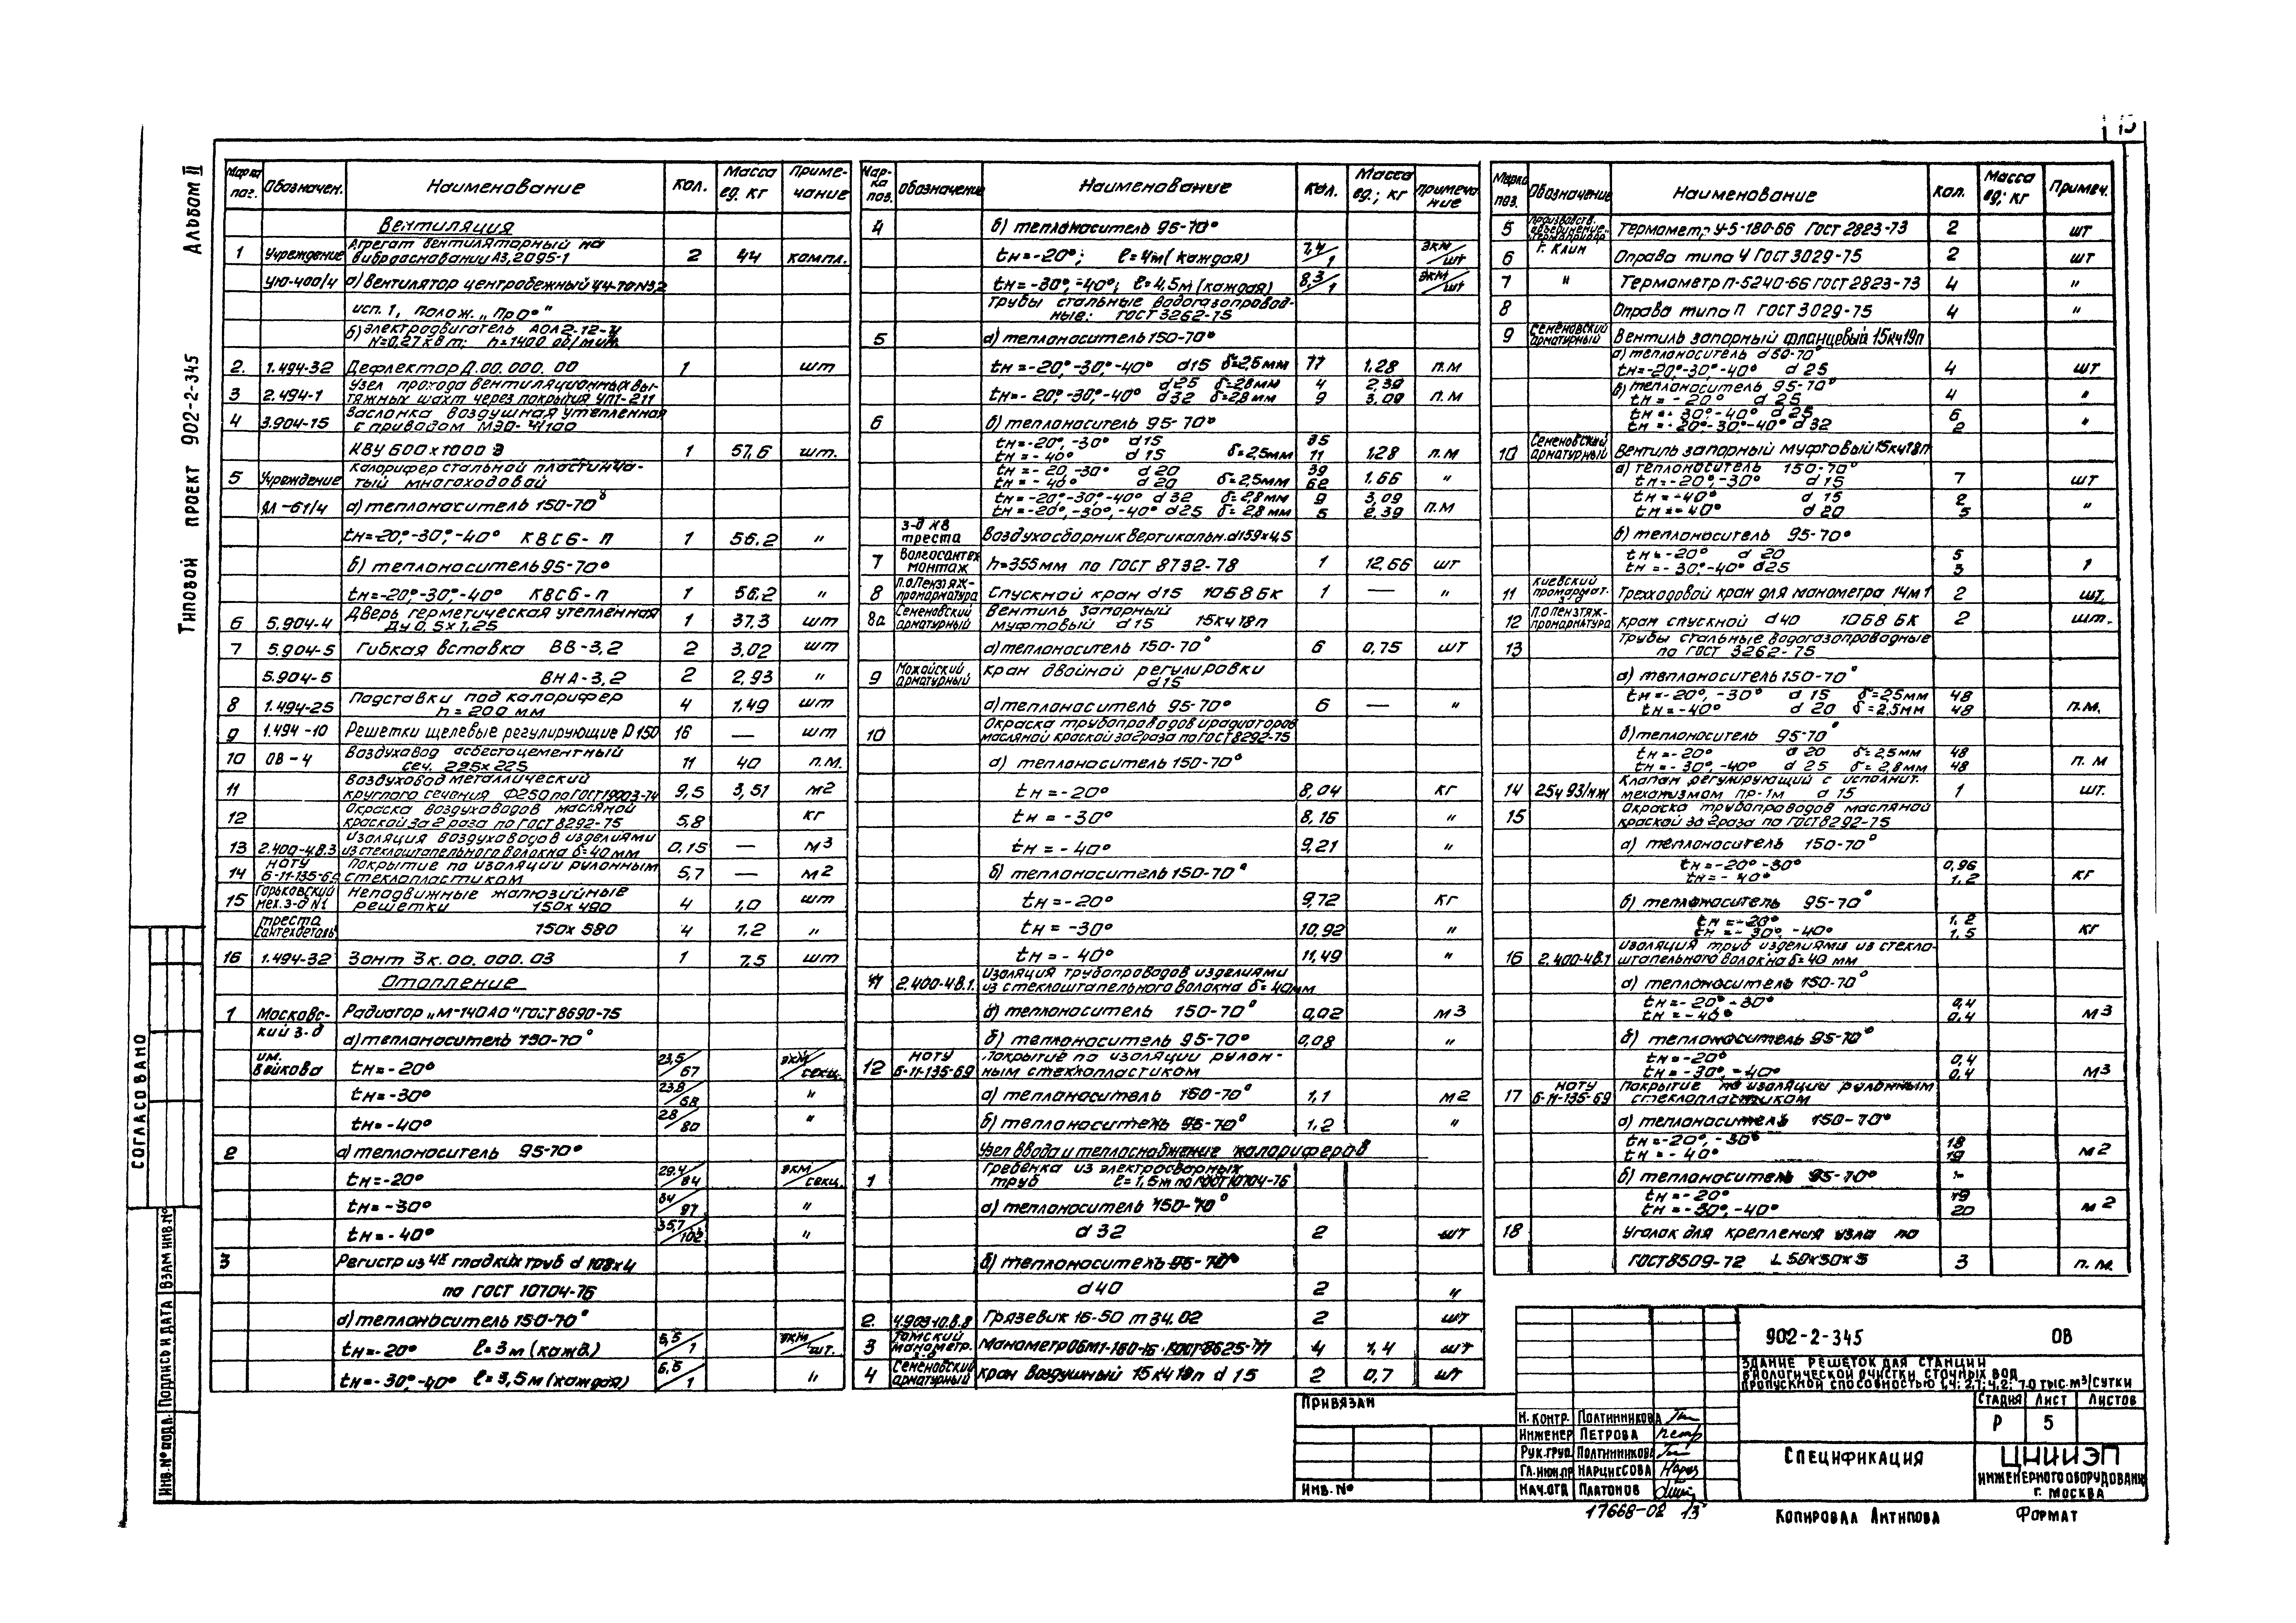 Альбом II
Типовой проект 902-2-345
Марка поз. Обозначен. Наименование Кол. Масса ед. кг Примечание
Вентиляция
1 Учреждение Агрегат вентиляторный на виброосновании А3,2095-1 2 44 компл.
УЮ-400/4 а) вентилятор центробежный Ц4-70 N3,2
исп. 1, полож. „Пр 0°"
б) электродвигатель АОЛ2-12-4 N=0,27 кВт; n=1400 об/мин
2. 1.494-32 Дефлектор Д.00.000.00 1 шт
3 2.494-1 Узел прохода вентиляционных вытяжных шахт через покрытия УП1-211
4 3.904-15 Заслонка воздушная утепленная с приводом МЭО-4/100
КВУ 600х1000 Э 1 57,6 шт.
5 Учреждение Калорифер стальной пластинчатый многоходовой
ЯЛ-61/4 а) теплоноситель 150-70°
tн=-20°,-30°,-40° КВС6-п 1 56,2 "
б) теплоноситель 95-70°
tн=-20°,-30°,-40° КВС6-п 1 56,2 "
6 5.904-4 Дверь герметическая утепленная Ду 0,5х1,25 1 37,3 шт
7 5.904-5 Гибкая вставка ВВ-3,2 2 3,02 шт
5.904-5 ВНА-3,2 2 2,93 "
8 1.494-25 Подставки под калорифер h=200 мм 4 1,49 шт
9 1.494-10 Решетки щелевые регулирующие Р150 16 — шт
10 ОВ-4 Воздуховод асбестоцементный сеч. 225х225 11 40 п.м.
11 Воздуховод металлический круглого сечения Ф250 по ГОСТ 19903-74 9,5 3,51 м2
12 Окраска воздуховодов масляной краской за 2 раза по ГОСТ 8292-75 5,8 кг
13 2.400-4 В.3 Изоляция воздуховодов изделиями из стеклоштапельного волокна δ=40мм 0.15 — м3
14 НОТУ 6-11-135-69 Покрытие по изоляции рулонным стеклопластиком 5,7 — м2
15 Горьковский мех. з-д N1 Неподвижные жалюзийные решетки 150х490 4 1,0 шт
треста Сантехдеталь 150х580 4 1,2 "
16 1.494-32 Зонт Зк.00.000.03 1 7,5 шт
Отопление
1 Московский з-д Радиатор „М-140АО" ГОСТ 8690-75
а) теплоноситель 150-70°
им. Войкова tн=-20° 23,5/67 экм/секц.
tн=-30° 23,8/68 "
tн=-40° 28/80 "
2 а) теплоноситель 95-70°
tн=-20° 29.4/84 экм/секц.
tн=-30° 34/97 "
tн=-40° 35,7/102 "
3 Регистр из 4х гладких труб d 108х4
по ГОСТ 10704-76
а) теплоноситель 150-70°
tн=-20° ℓ=3м (кажд.) 5,5/1 экм/шт.
tн=-30°,-40° ℓ=3,5м (каждая) 6,5/1 "
Марка поз. Обозначение Наименование Кол. Масса ед.; кг Примечание
4 б) теплоноситель 95-70°
tн=-20°; ℓ=4м (каждая) 7,4/1 экм/шт
tн=-30°,-40°; ℓ=4,5м (каждая) 8,3/1 экм/шт
Трубы стальные водогазопроводные: ГОСТ 3262-75
5 а) теплоноситель 150-70°
tн=-20°,-30°,-40° d15 δ=2,5мм 77 1,28 п.м
tн=-20°,-30°,-40° d25 δ=2,8мм 4 2,39
d32 δ=2,8мм 9 3,09 п.м
6 б) теплоноситель 95-70°
tн=-20°,-30° d15 35
tн=-40° d15 δ=2,5мм 11 1,28 п.м
tн=-20,-30° d20 39
tн=-40° d20 δ=2,5мм 62 1.66 "
tн=-20°-30°-40° d32 δ=2,8мм 9 3,09
tн=-20°,-30°,-40° d25 δ=2,8мм 5 2,39 п.м
треста Воздухосборник вертикальн. d159х4,5
7 Волгосантехмонтаж h=355мм по ГОСТ 8732-78 1 12,66 шт
8 П.О.Пензтяжпромарматура Спускной кран d15 10Б8БК 1 — "
8а Семеновский арматурный Вентиль запорный муфтовый d15 15кч18п
а) теплоноситель 150-70° 6 0,75 шт
9 Можайский арматурный Кран двойной регулировки d15
а) теплоноситель 95-70° 6 — "
10 Окраска трубопроводов и радиаторов масляной краской за 2 раза по ГОСТ 8292-75
а) теплоноситель 150-70°
tн=-20° 8,04 кг
tн=-30° 8,16 "
tн=-40° 9,21 "
б) теплоноситель 150-70°
tн=-20° 9,72 кг
tн=-30° 10,92 "
tн=-40° 11,49 "
11 2.400-4 В.1. Изоляция трубопроводов изделиями из стеклоштапельного волокна δ=40мм
а) теплоноситель 150-70° 0,02 м3
б) теплоноситель 95-70° 0,08 "
12 НОТУ 6-11-135-69 Покрытие по изоляции рулонным стеклопластиком
а) теплоноситель 150-70° 1,1 м2
б) теплоноситель 95-70° 1,2 "
Узел ввода и теплоснабжение калориферов
1 Гребенка из электросварных труб ℓ=1,5м по ГОСТ 10704-76
а) теплоноситель 150-70°
d32 2 шт
б) теплоноситель 95-70°
d40 2 "
2. 4.903-10.в.8 Грязевик 16-50 т34.02 2 шт
3 Томский манометр. з-д Манометр ОБМ1-160-16 ГОСТ 8625-77 4 1,4 шт
4 Семеновский арматурный Кран воздушный 15кч18п d15 2 0,7 шт
Марка поз. Обозначение Наименование Кол. Масса ед; кг Примеч.
5 Производств. объединение Термоприбор Термометр У-5-180-66 ГОСТ 2823-73 2 шт
6 г. Клин Оправа типа У ГОСТ 3029-75 2 шт
7 " Термометр П-5240-66 ГОСТ 2823-73 4 "
8 Оправа типа П ГОСТ 3029-75 4 "
9 Семеновский арматурный Вентиль запорный фланцевый 15кч19п
а) теплоноситель 150-70°
tн=-20°-30°-40° d25 4 шт
б) теплоноситель 95-70°
tн=-20° d25 4 "
tн=-30°-40° d25 6
tн=-20°-30°-40° d32 2 "
10 Семеновский арматурный Вентиль запорный муфтовый 15кч18п
а) теплоноситель 150-70°
tн=-20°,-30° d15 7 шт
tн=-40° d15 2
tн=-40° d20 5 "
б) теплоноситель 95-70°
tн=-20° d20 5
tн=-30°,-40° d25 3
11 Киевский промармат. Трехходовой кран для манометра 14м1 2 шт.
12 П.О Пензтяжпромарматура Кран спускной d40 10Б8БК 2 шт.
13 Трубы стальные водогазопроводные по ГОСТ 3262-75
а) теплоноситель 150-70°
tн=-20°,-30° d15 δ=2,5мм 48
tн=-40° d20 δ=2,5мм 48 п.м.
б) теплоноситель 95-70°
tн=-20° d20 δ=2,5мм 48
tн=-30°,-40° d25 δ=2,8мм 48 п.м
14 25ч93/нж Клапан регулирующий с исполнит. механизмом ПР-1м d15 1 шт.
15 Окраска трубопроводов масляной краской за 2 раза по ГОСТ 8292-75
а) теплоноситель 150-70°
tн=-20°-30° 0,96
tн=-40° 1,2 кг
б) теплоноситель 95-70°
tн=-20° 1,2
tн=-30°,-40° 1,5 кг
16 2.400-4 В.1 Изоляция труб изделиями из стеклоштапельного волокна δ=40мм
а) теплоноситель 150-70°
tн=-20°-30° 0,4
tн=-40° 0,4 м3
б) теплоноситель 95-70°
tн=-20° 0,4
tн=-30°,-40° 0,4 м3
17 НОТУ 6-11-135-69 Покрытие по изоляции рулонным стеклопластиком
а) теплоноситель 150-70°
tн=-20°,-30° 18
tн=-40° 19 м2
б) теплоноситель 95-70°
tн=-20° 19
tн=-30°,-40° 20 м2
18 Уголок для крепления узла по
ГОСТ 8509-72 L 50х50х5 3 п.м.
СОГЛАСОВАНО
ИНВ.№ПОДЛ. ПОДПИСЬ И ДАТА ВЗАМ ИНВ.№
ПРИВЯЗАН
ИНВ.№
Н.КОНТР. ПОЛТИННИКОВА
ИНЖЕНЕР ПЕТРОВА
РУК.ГРУП ПОЛТИННИКОВА
ГЛ.ИНЖ.ПР НАРЦИССОВА
НАЧ.ОТД ПЛАТОНОВ
902-2-345 ОВ
ЗДАНИЕ РЕШЕТОК ДЛЯ СТАНЦИИ
БИОЛОГИЧЕСКОЙ ОЧИСТКИ СТОЧНЫХ ВОД
ПРОПУСКНОЙ СПОСОБНОСТЬЮ 1,4; 2,7; 4,2; 7.0 ТЫС.М³/СУТКИ
СТАДИЯ ЛИСТ ЛИСТОВ
Р 5
СПЕЦИФИКАЦИЯ
ЦНИИЭП
ИНЖЕНЕРНОГО ОБОРУДОВАНИ
Г. МОСКВА
17668-02 13
КОПИРОВАЛ АНТИПОВА ФОРМАТ